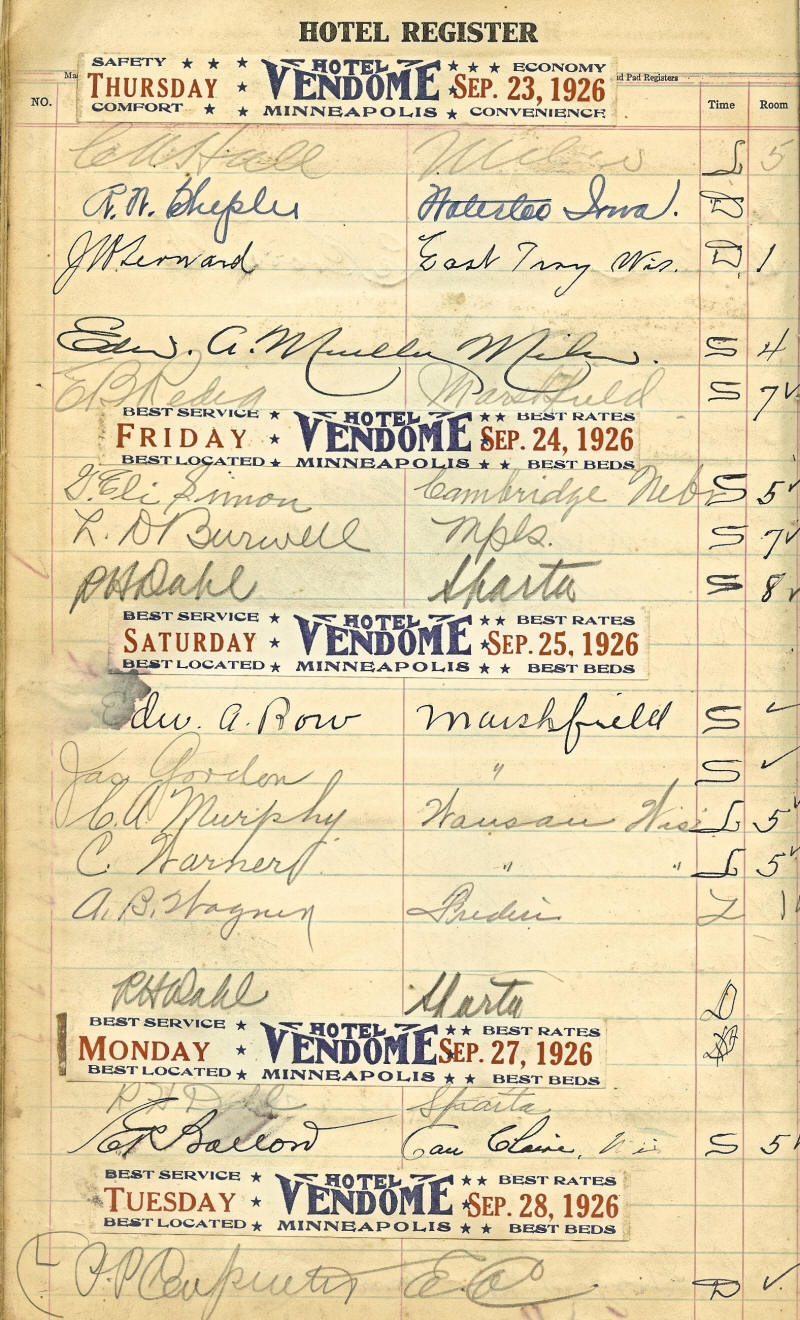 HOTEL REGISTER
Ma d Pad Registers
NO. Time Room
SAFETY ★ ★ ★ HOTEL ★ ★ ★ ECONOMY
THURSDAY ★ VENDOME ★ SEP. 23, 1926
COMFORT ★ ★ MINNEAPOLIS ★ CONVENIENCE
C A Hall L 5
R. W. Shepler Waterloo Iowa. D
East Troy Wis. D 1
Edw. A. Mueller Milw. S 4
E B Marshfield S 7 ✓
BEST SERVICE ★ HOTEL ★★ BEST RATES
FRIDAY ★ VENDOME ★ SEP. 24, 1926
BEST LOCATED ★ MINNEAPOLIS ★ ★ BEST BEDS
Eli Simon Cambridge Nebr S 5 ✓
L. D Burwell Mpls. S 7 ✓
R H Dahl Sparta S 8 ✓
BEST SERVICE ★ HOTEL ★★ BEST RATES
SATURDAY ★ VENDOME ★ SEP. 25, 1926
BEST LOCATED ★ MINNEAPOLIS ★ ★ BEST BEDS
Edw. A. Row Marshfield S ✓
Jas Gordon " S ✓
C. A Murphy Wausau Wis L 5 ✓
C. Warner " " L 5 ✓
A. B. Wagner L 1
R H Dahl Sparta D
BEST SERVICE ★ HOTEL ★★ BEST RATES
MONDAY ★ VENDOME ★ SEP. 27, 1926
BEST LOCATED ★ MINNEAPOLIS ★ ★ BEST BEDS
R H Dahl Sparta
Ballow Eau Claire, Wis S 5 ✓
BEST SERVICE ★ HOTEL ★★ BEST RATES
TUESDAY ★ VENDOME ★ SEP. 28, 1926
BEST LOCATED ★ MINNEAPOLIS ★★ BEST BEDS
L P. P Carpenter E. C D ✓